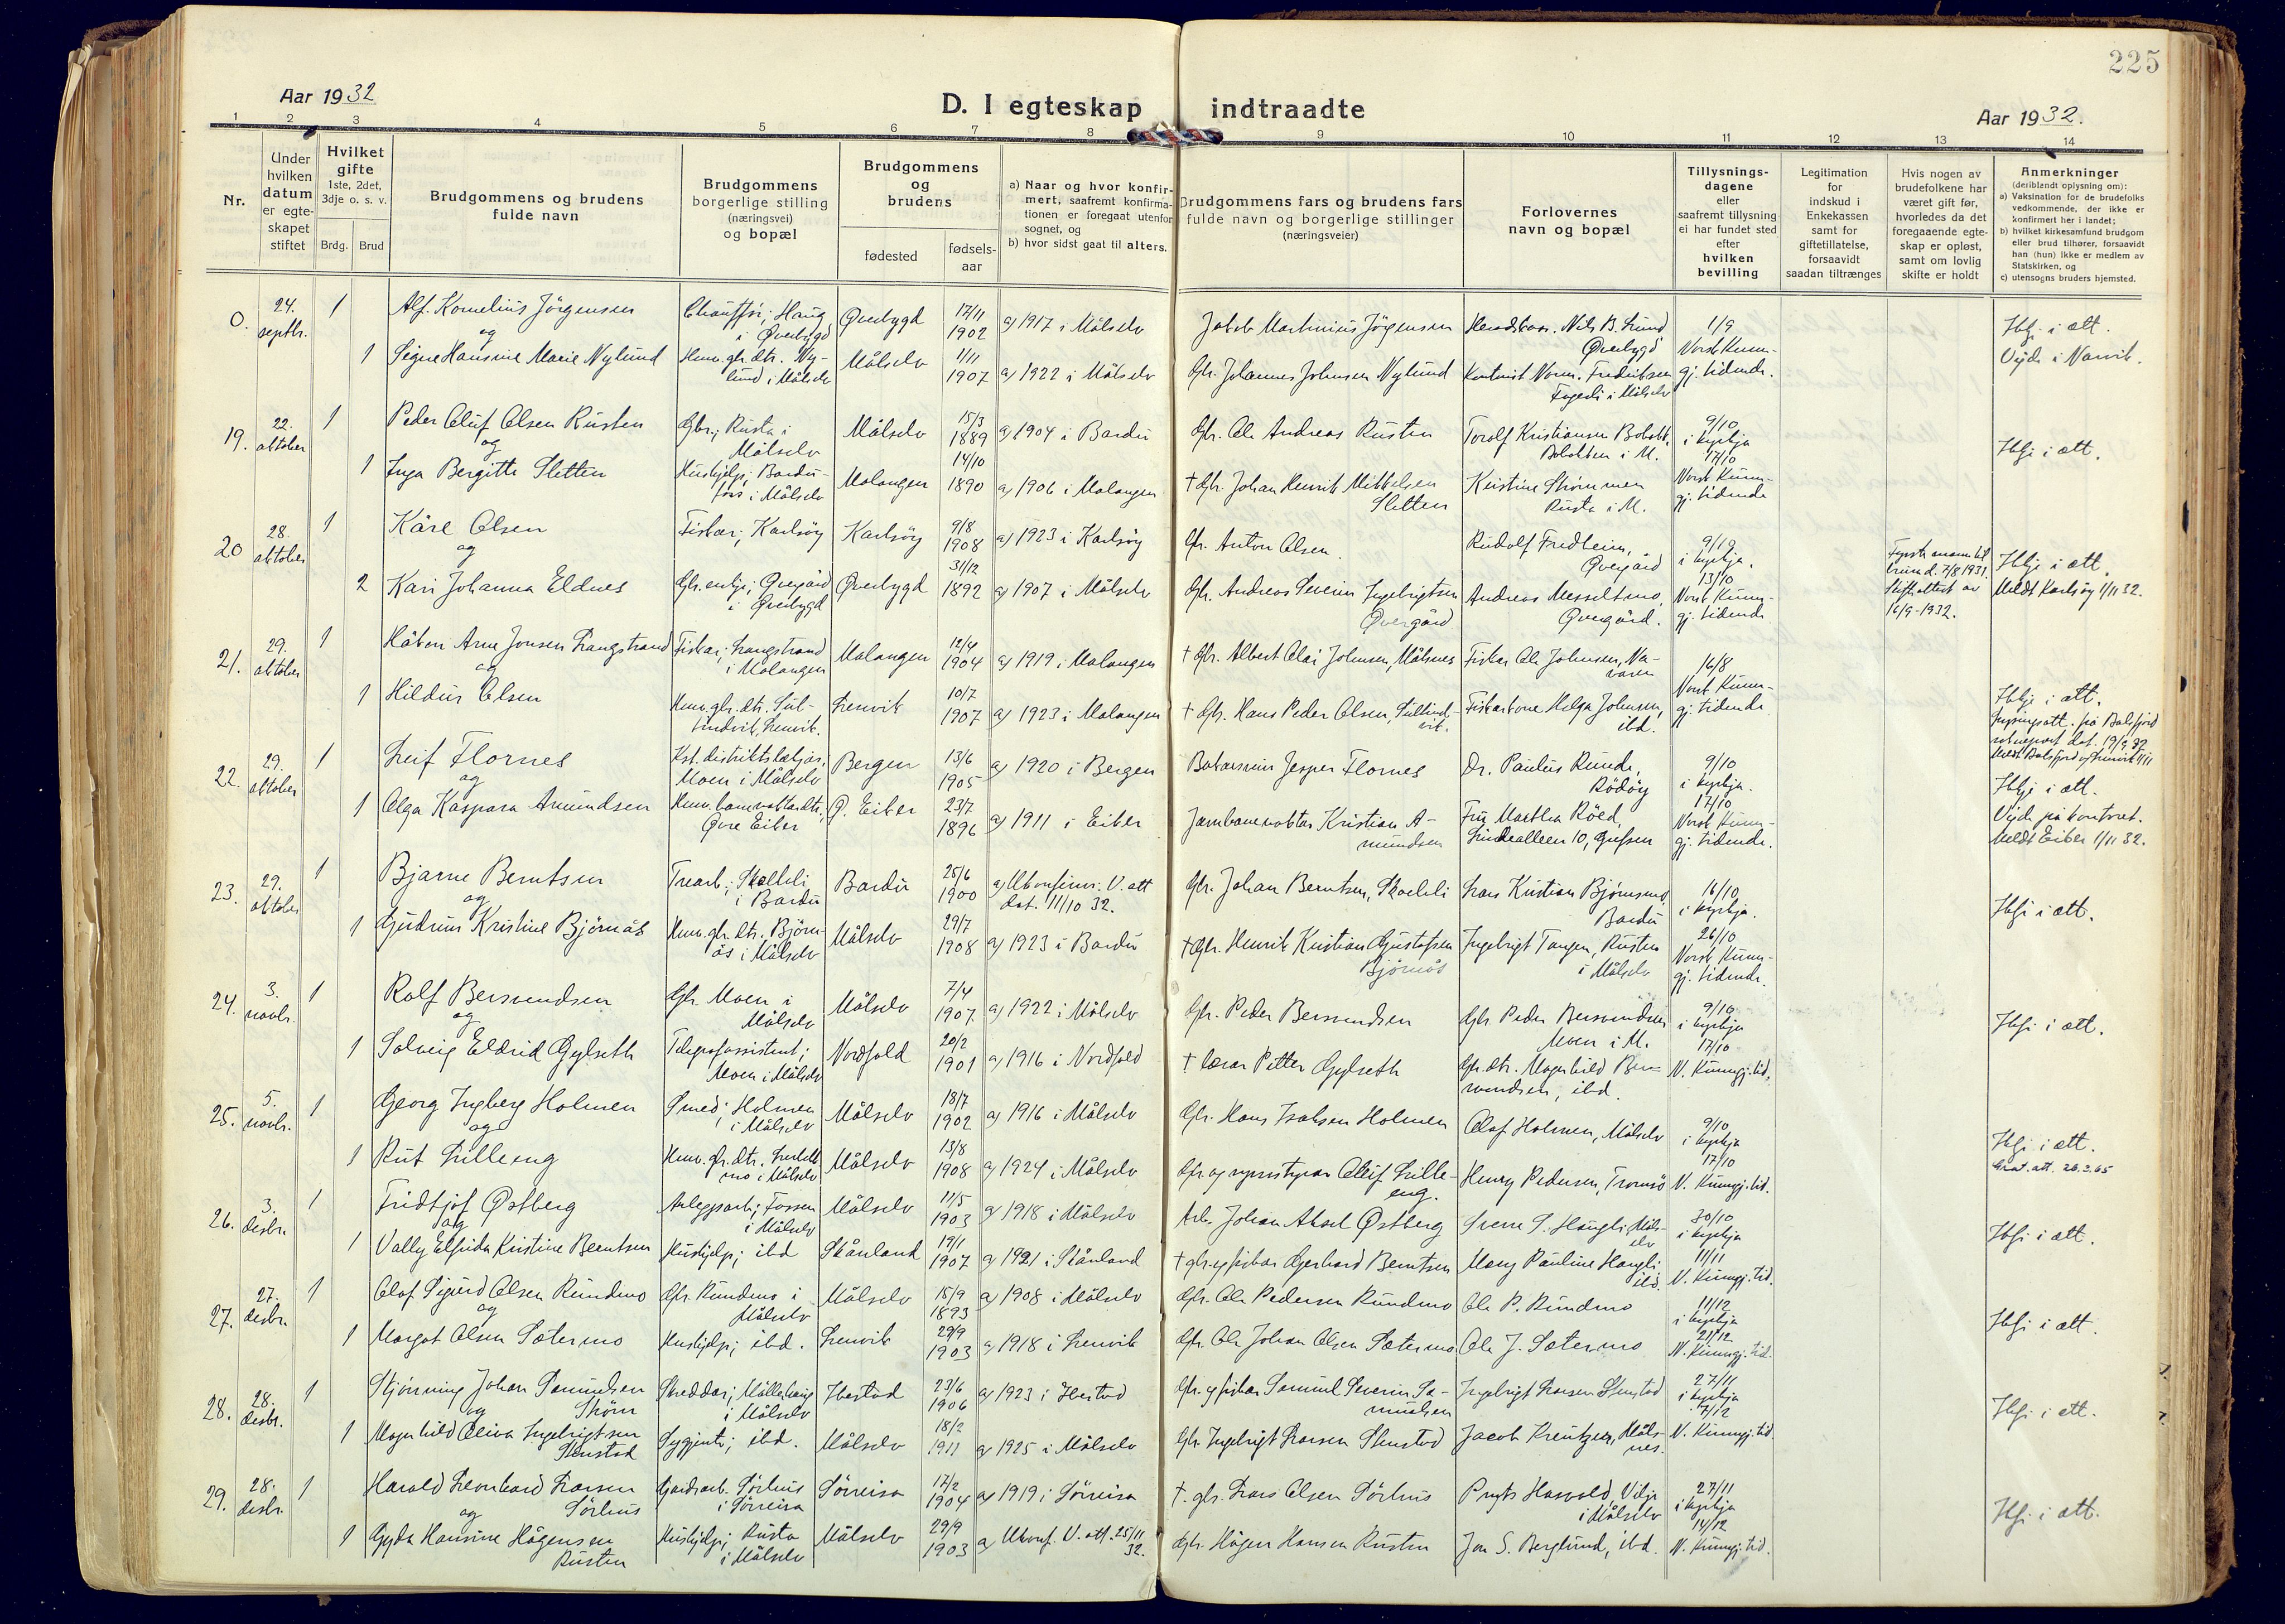 225
Aar 1932
D. I egteskap indtraadte
Aar 1932.
1 2 3 4 5 6 7 8 9 10 11 12 13 14
Nr.
Under hvilken datum er egteskapet stiftet
Hvilket gifte 1ste, 2det, 3dje o. s. v.
Brdg. Brud
Brudgommens og brudens fulde navn
Brudgommens borgerlige stilling (næringsvei) og bopæl
Brudgommens og brudens
fødested
fødsels-aar
a) Naar og hvor konfirmert, saafremt konfirmationen er foregaat utenfor sognet, og
b) hvor sidst gaat til alters.
Brudgommens fars og brudens fars fulde navn og borgerlige stillinger (næringsveier)
Forlovernes navn og bopæl
Tillysningsdagene eller saafremt tillysning ei har fundet sted efter hvilken bevilling
Legitimation for indskud i Enkekassen samt for giftetillatelse, forsaavidt saadan tiltrænges
Hvis nogen av brudefolkene har været gift før, hvorledes da det foregaaende egteskap er opløst, samt om lovlig skifte er holdt
Anmerkninger
(deriblandt oplysning om):
a) Vaksination for de brudefolks vedkommende, der ikke er konfirmert her i landet;
b) hvilket kirkesamfund brudgom eller brud tilhører, forsaavidt han (hun) ikke er medlem av Statskirken, og
c) utensogns bruders hjemsted.
0. 24. septbr. 1 Alf Kornelius Jörgensen Chauffør; Haug i Øverbygd Øverbygd 17/11 1902 a) 1917 i Målselv Jakob Martinius Jörgensen Nils B. Lund Øverbygd 1/9
og
1 Signe Hansine Marie Nylund Hmv. gbr. dtr. Nylund i Målselv Målselv 1/11 1907 a) 1922 i Målselv Gbr. Johannes Johnsen Nylund Kontorist Norm. Fredriksen Fagerli i Målselv Norsk Kunngj. tidende. Hfj. i ått.
19. 22. oktober 1 Peder Oluf Olsen Rusten Gbr.; Rusta i Målselv Målselv 15/3 1889 a) 1904 i Bardu Gbr. Ole Andreas Rusten Torolf Kristiansen i M. 9/10 i kyrkja
og
1 Inga Bergitte Sletten Hushjelp; Bardufoss i Målselv Malangen 14/10 1890 a) 1906 i Malangen † Gbr. Johan Henrik Mikkelsen Sletten Kristine Strömmen Rusta i M. 17/10 Norsk Kunngj. tidende
20 28. oktober 1 Kåre Olsen Fiskar; Karlsöy Karlsöy 9/8 1908 a) 1923 i Karlsöy Gbr. Anton Olsen Rudolf Fredheim, Øvergård 9/10 i kyrkja.
og
2 Kari Johanna Eldnes Gbr. enkje; Øvergård i Øverbygd Øverbygd 31/12 1892 a) 1907 i Målselv Gbr. Andreas Severin Ingebrigtsen Øvergård Andreas Messeltmo, Øvergård. 13/10 Norsk Kunngj. tidende 7/8 1931. Skifteattest av 16/9-1932. Meldt Karlsöy 1/11 32.
21. 29. oktober 1 Håkon Arne Jensen Langstrand Fiskar; Langstrand i Malangen Malangen 12/4 1904 a) 1919 i Malangen † Gbr. Albert Olai Johnsen, Målsnes Fiskar Ole Johnsen, 16/8
og
1 Hildur Olsen Hmv. gbr. dtr. Lenvik. Lenvik 10/7 1907 a) 1923 i Malangen † Gbr. Hans Peder Olsen, Fiskarkone Helga Johnsen, ibd. Norsk Kunngj. tidende
22. 29. oktober 1 Leif Flornes Kst. distriktslækjar, Moen i Målselv Bergen 13/6 1905 a) 1920 i Bergen Jesper Flornes Dr. Paulus Runde, Rödöy 9/10 i kyrkja.
og
1 Olga Kaspara Amundsen Øvre Eiker Ø. Eiker 23/7 1896 a) 1911 i Eiker Jarnbanevaktar Kristian Amundsen Fru Martha Röed, 17/10 Norsk Kunngj. tidende. Meldt Eiker 1/11 32.
23. 29. oktober 1 Bjarne Berntsen Trearb.; i Bardu Bardu 25/6 1900 a) Ukonfirm. V. att dat. 11/10 32. Gbr. Johan Berntsen, Lars Kristian Bjørnsmo, Bardu 16/10 i kyrkja.
og
1 Gudrun Kristine Bjørnås Hmv. gbr. dtr. Bjørnås i Målselv Målselv 29/7 1908 a) 1923 i Bardu † Gbr. Henrik Kristian Gustafsen Bjørnås Ingebrigt Tangen, Rusten i Målselv 26/10 Norsk Kunngj. tidende.
24. 3. novbr. 1 Rolf Bersvendsen Gbr. Moen i Målselv Målselv 7/4 1907 a) 1922 i Målselv Gbr. Peder Bersvendsen Gbr. Peder Bersvendsen Moen i M. 9/10 i kyrkja
og
1 Solveig Eldrid Gylseth Telegrafassistent; Moen i Målselv Nordfold 20/2 1901 a) 1916 i Nordfold † lærar Petter Gylseth Gbr. dtr. Magnhild Bersvendsen, ibd. 17/10 N. Kunngj. tid.
25. 5. novbr. 1 Georg Ingberg Holmen Smed; Holmen i Målselv Målselv 18/7 1902 a) 1916 i Målselv Gbr. Hans Isaksen Holmen Olaf Holmen, Målselv 9/10 i kyrkja
og
1 Rut Lilleeng Hmv. gbr. dtr. i Målselv Målselv 13/8 1908 a) 1924 i Målselv Lilleeng. Henry Pedersen, Tromsö 17/10 N. Kunngj. tid.
26. 3. desbr. 1 Fridtjof Østberg Anleggsarb.; Fossen i Målselv Målselv 11/5 1903 a) 1918 i Målselv Arb. Johan Aksel Østberg Haugli, Målselv 30/10 i kyrkja
og
1 Vally Elfrida Kristine Berntsen Hushjelp; ibd Skånland 19/1 1907 a) 1921 i Skånland † gbr. og fiskar Gerhard Berntsen Mary Pauline Haugli ibd. 11/11 N. Kunngj. tid.
27. 27. desbr. 1 Olaf Sigurd Olsen Rundmo Gbr. Rundmo i Målselv Målselv 15/9 1893 a) 1908 i Målselv Gbr. Ole Pedersen Rundmo Ole P. Rundmo 11/12 i kyrkja
og
1 Margot Olsen Sætermo Hushjelp; ibd. Lenvik 29/9 1903 a) 1918 i Lenvik Gbr. Ole Johan Olsen Sætermo Ole J. Sætermo 21/12 N. Kunngj. tid.
28. 28. desbr. 1 Stjørning Johan Samuelsen Strøm Skreddar; i Målselv Ibestad 23/6 1906 a) 1923 i Ibestad Gbr. og fiskar Samuel Severin Samuelsen Ingebrigt Larsen Stenstad 27/11 i kyrkja
og
1 Magnhild Oleiva Ingebrigtsen Stenstad Syggjente; ibd. Målselv 18/2 1911 a) 1925 i Målselv Gbr. Ingebrigt Larsen Stenstad Jacob Kreutzer, Målsnes. 7/12 N. Kunngj. tid.
29. 28. desbr. 1 Harald Leonhard Larsen Sörhus Gardsarb. Sörhus i Sörreisa Sörreisa 17/2 1904 a) 1919 i Sörreisa †. gbr. Lars Olsen Sörhus i Målselv 27/11 i kyrkja
og
1 Gyda Hansine Hågensen Rusten Hushjelp; Rusta i Målselv Målselv 29/9 1903 a) Ukonf. V. att. 25/11 32. Gbr. Hågen Hansen Rusten Jon S. Berglund, ibd. 14/12 N. Kunngj. tid.